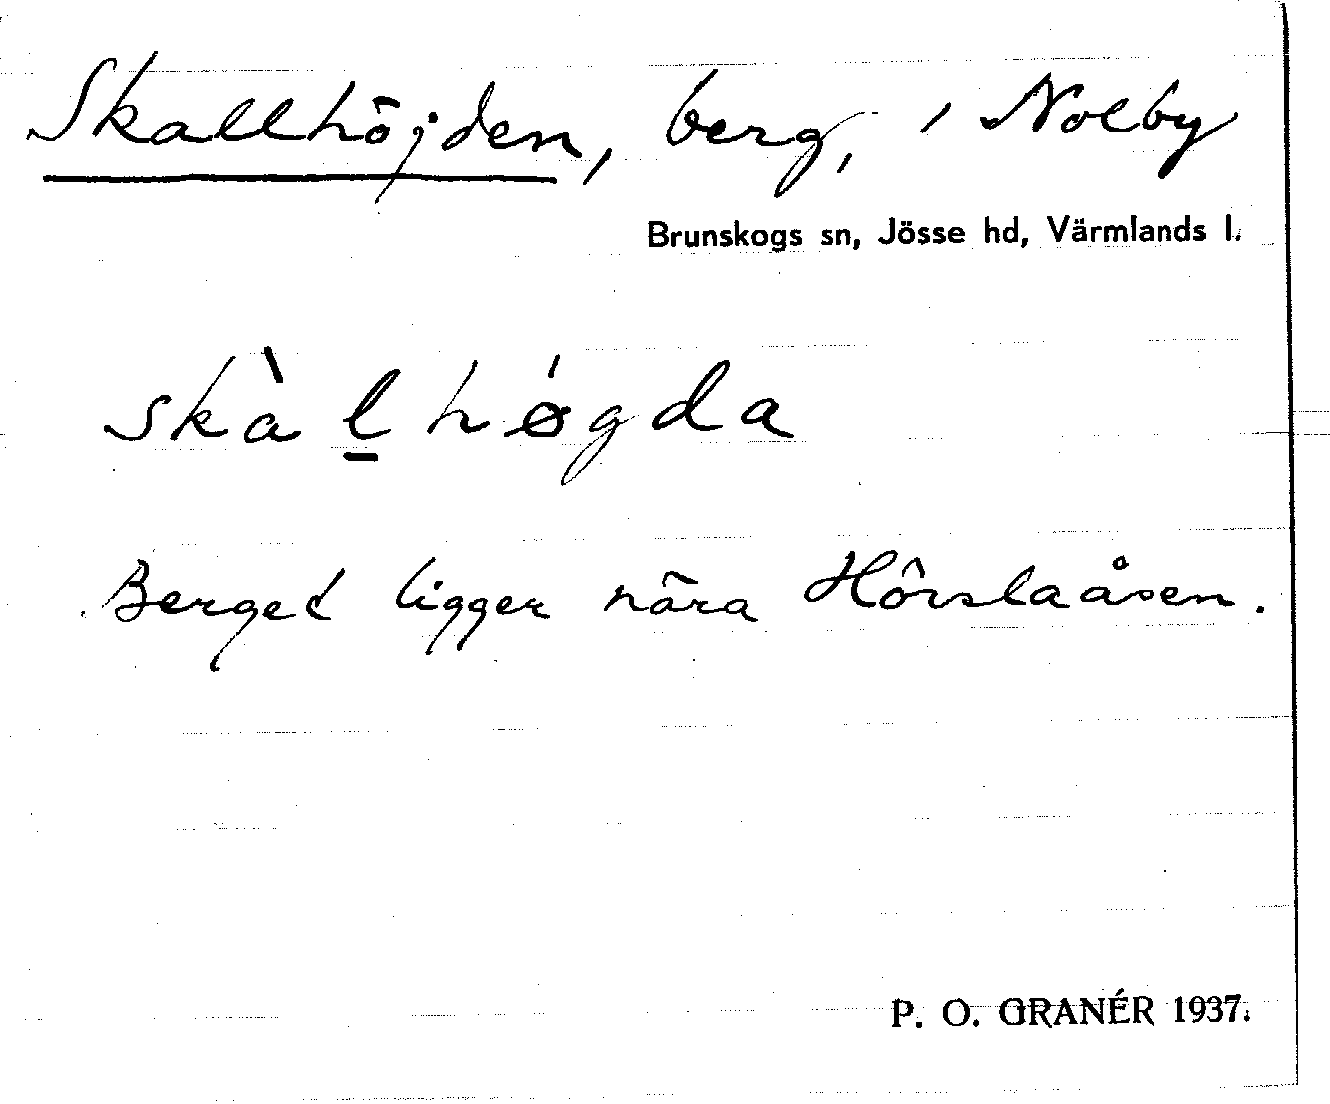 Skallhöjden, berg, i Nolby
Brunskogs sn, Jösse hd, Värmlands l.
skàl̲hǿgda
Berget ligger nära Hôrslaåsen.
P. O. GRANÉR 1937.